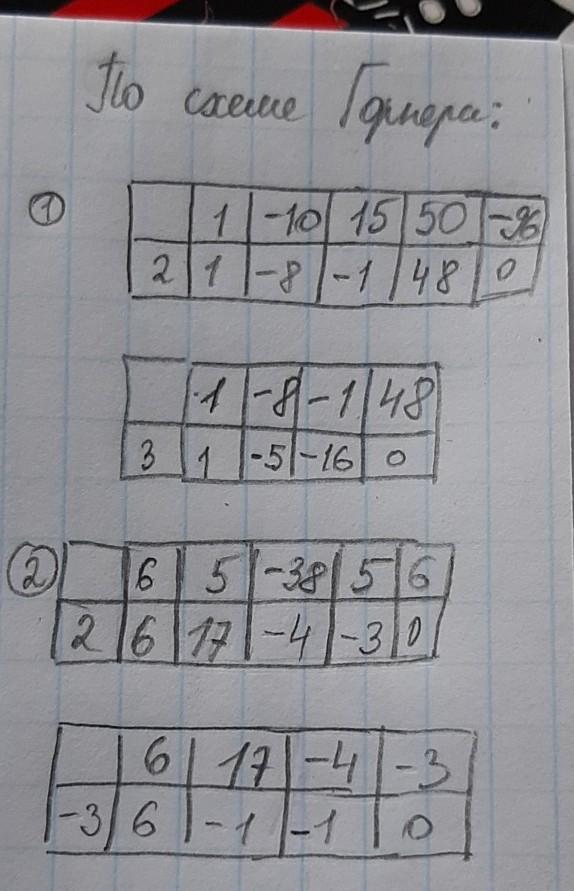 По схеме Горнера:
① 1 -10 15 50 -96
2 1 -8 -1 48 0
1 -8 -1 48
3 1 -5 -16 0
② 6 5 -38 5 6
2 6 17 -4 -3 0
6 17 -4 -3
-3 6 -1 -1 0